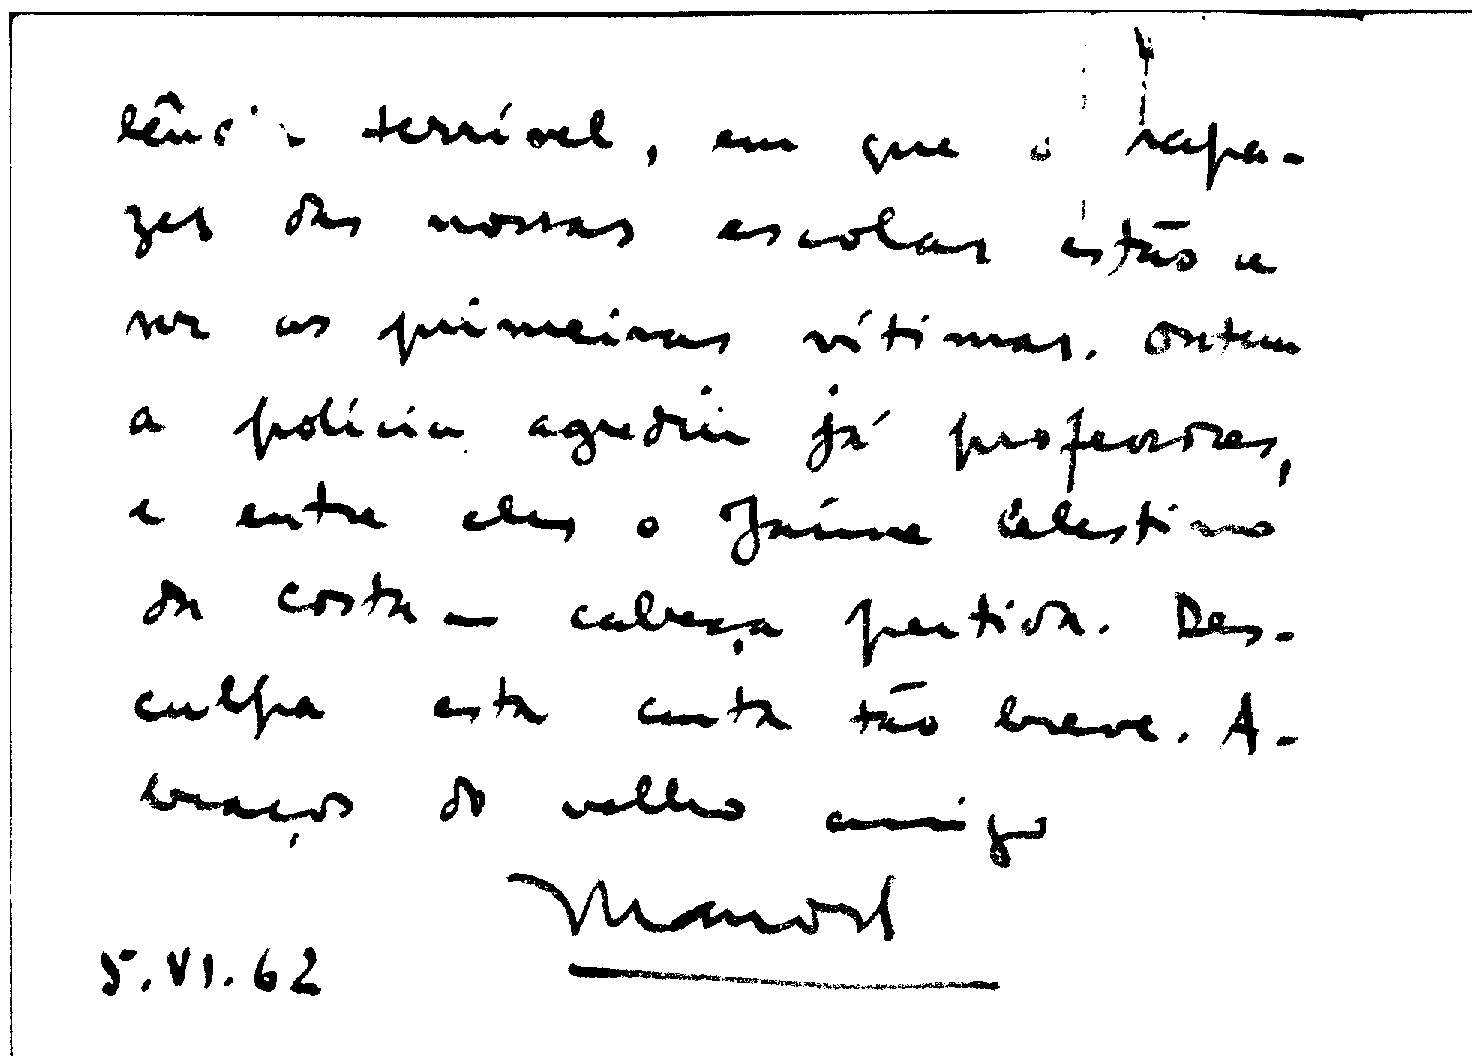 lência terrível, em que o rapa-
zes das nossas escolas estão a
ser as primeiras vítimas. Ontem
a polícia agrediu já professores,
e entre eles o Jaime Celestino
da Costa – cabeça partida. Des-
culpa esta carta tão breve. A-
braços do velho amigo
Manoel
5.VI.62